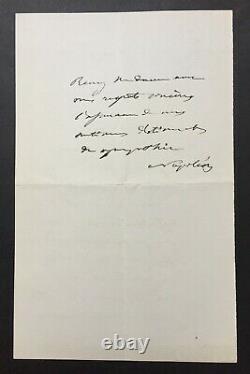 Recevez Madame avec
mes regrets sincères
l'expression de mes
sentiments
de sympathie
Napoléon
ebay